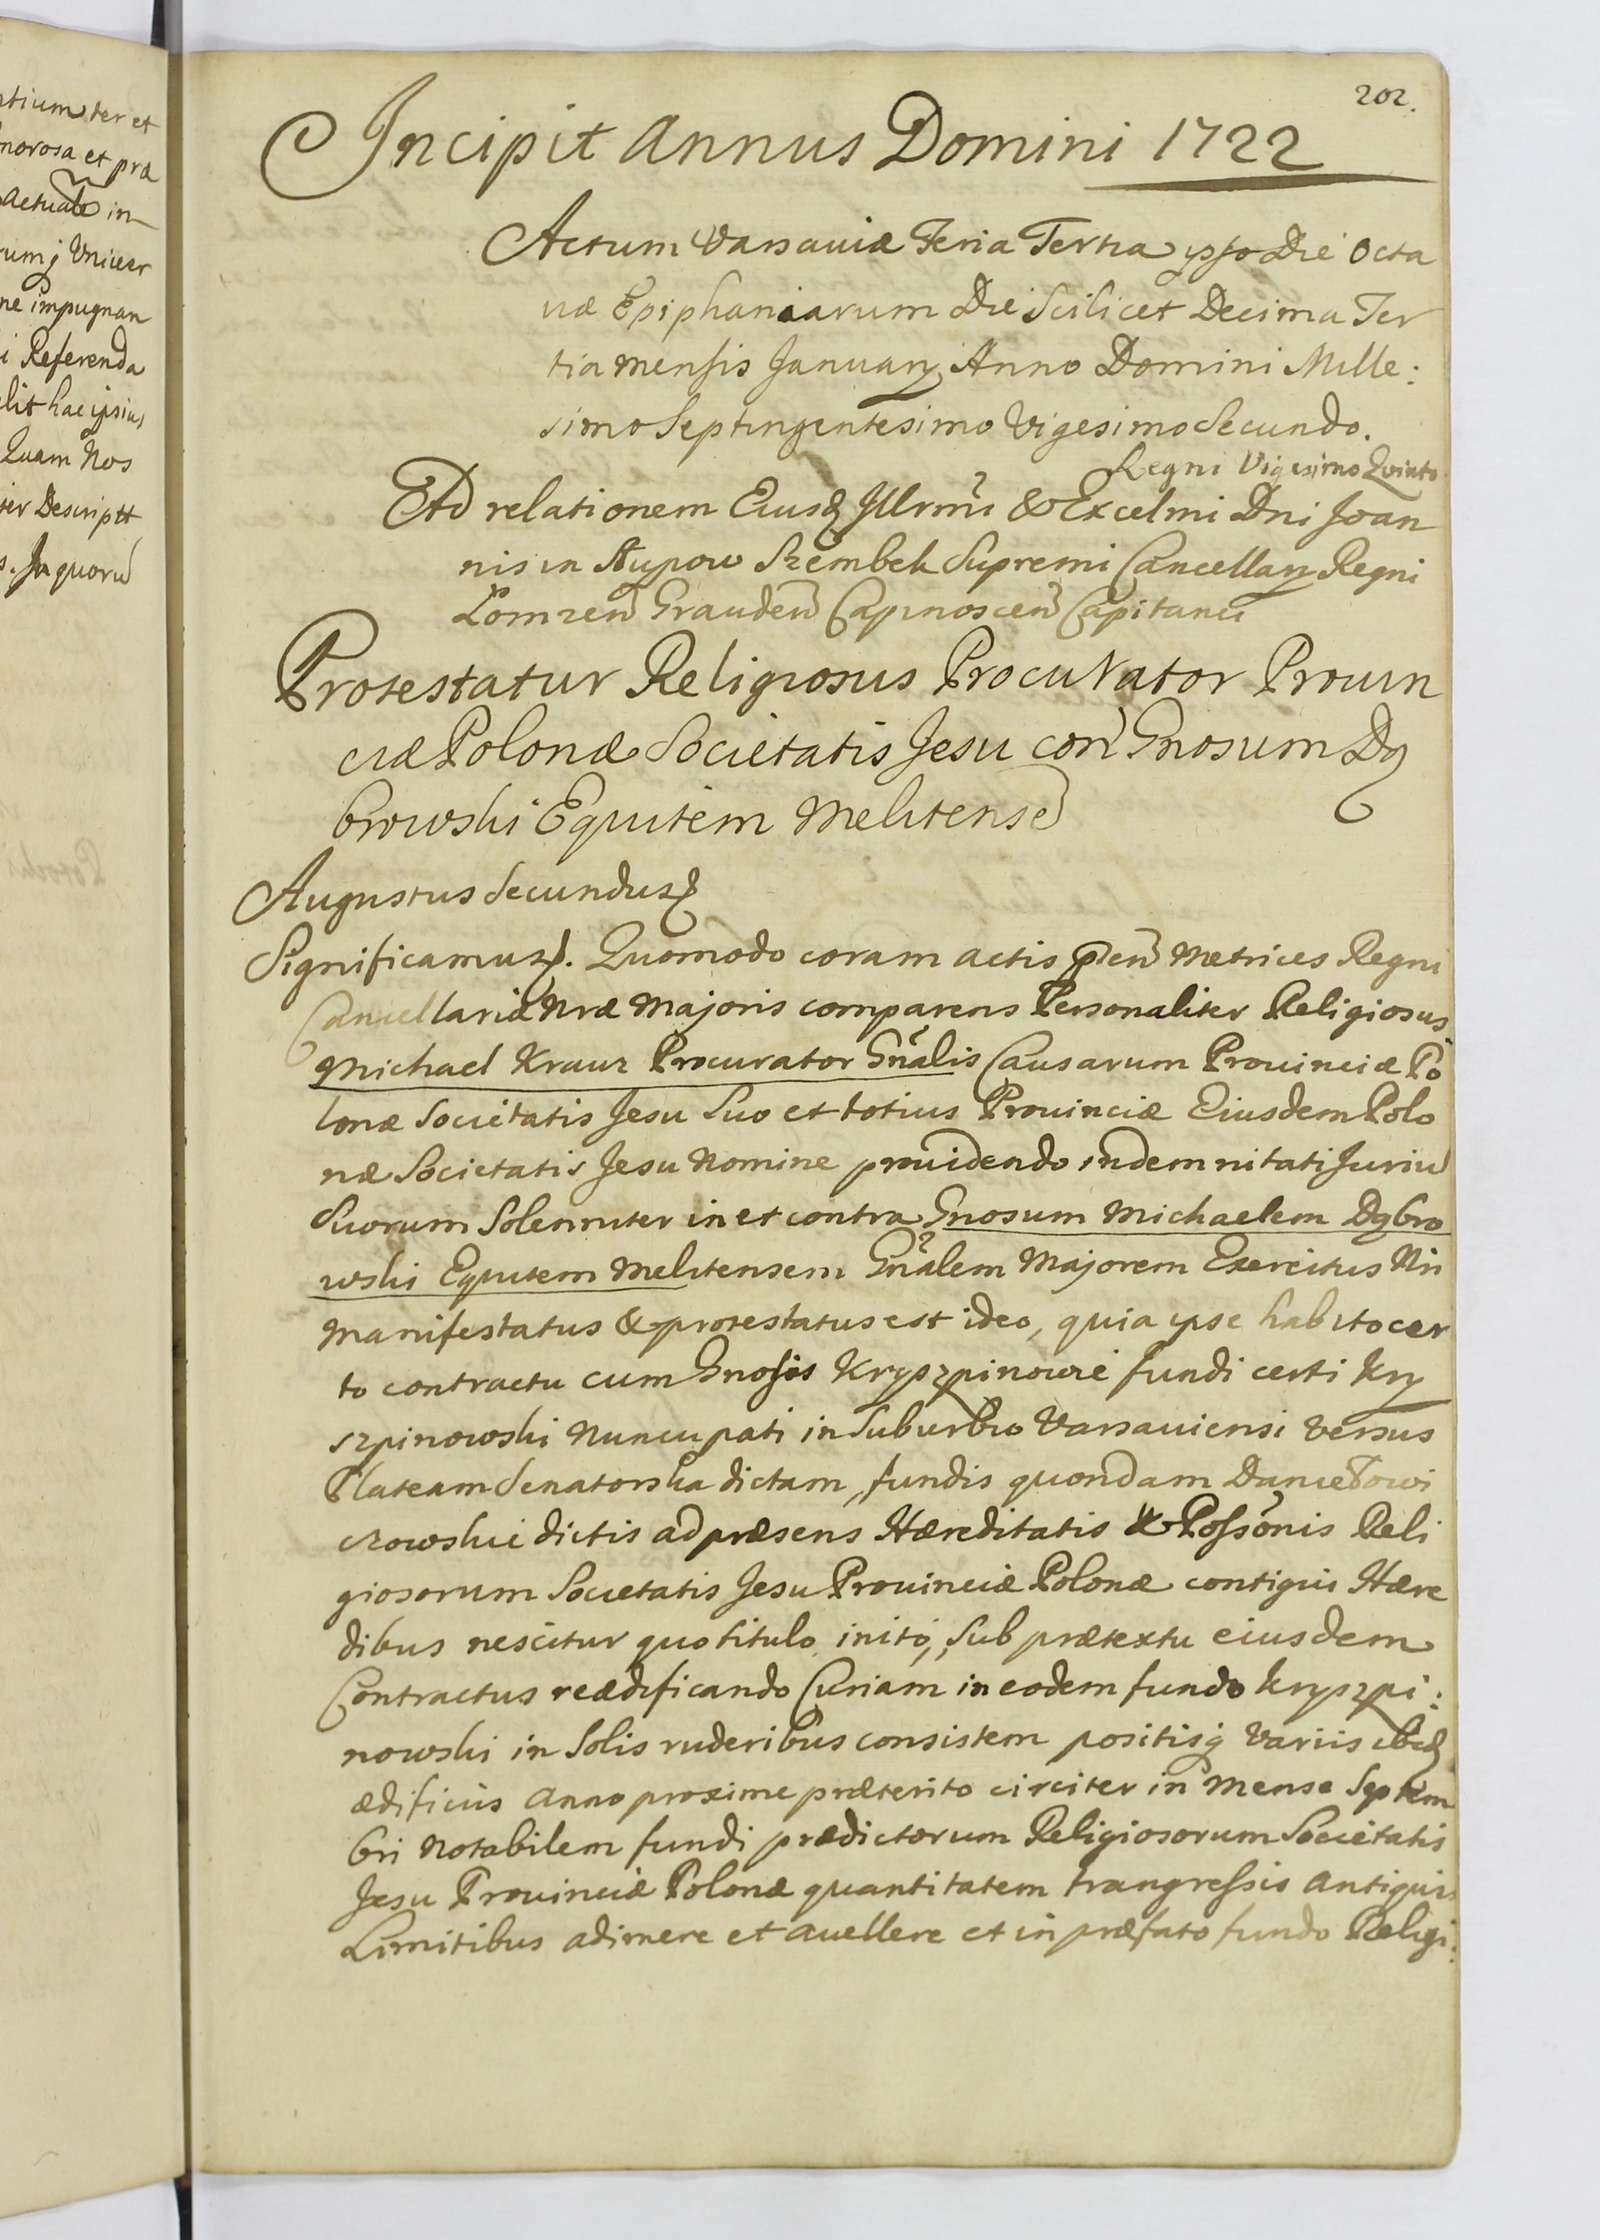 ntium ter et
norosa et præ
Actuale in
rumq Vniver
ne impugnan
i Referenda
elit hac ipsius
Quam Nos
ter Descriptt
s. In quorū
202.
Incipit Annus Domini 1722
Actum Varsaviæ Feria Tertia ipso Die Octa
væ Epiphaniarum Die Scilicet Decima Ter
tia mensis Januarij Anno Domini Mille:
simo Septingentesimo Vigesimo Secundo.
Regni Vigesimo Quinto
Ad relationem Eiusd Illrmi & Excelmi Dni Joan
nis in Słupow Szembek Supremi Cancellarij Regni
Lomzen Grauden Capinoscen Capitanei
Protestatur Religiosus Procurator Provin
ciæ Polonæ Societatis Jesu con Gnosum Dą
browski Equitem Melitensē
Augustus Secundus
Significamus. Quomodo coram actis pñ Metrices Regni
Cancellariæ Nræ Majoris comparens Personaliter Religiosus
Michael Kraus Procurator Gnalis Causarum Provinciæ Po
lonæ Societatis Jesu Suo et totius Provinciæ Eiusdem Polo
næ Societatis Jesu Nomine providendo indemnitati Juriū
Suorum Solenniter in et contra Gnosum Michaelem Dąbro
wski Equitem Melitensem Gnalem Majorem Exercitus Nri
Manifestatus & protestatus est ideo, quia ipse habito cer
to contractu cum Gnosis Kryszpinowie fundi certi Kry
szpinowski Nuncupati in Suburbio Varsaviensi versus
Plateam Senatorska dictam, fundis quondam Danielowi
czowskie dictis ad præsens Hæreditatis & Possonis Reli
giosorum Societatis Jesu Provinciæ Polonæ contigui Hære
dibus nescitur quo titulo inito, Sub prætextu eiusdem
Contractus reædificando Curiam in eodem fundo Kryszpi:
nowski in Solis ruderibus consistem positisq Variis ibid
ædificiis Anno proxime præterito circiter in Mense Septem
bri Notabilem fundi prædictorum Religiosorum Societatis
Jesu Provinciæ Polonæ quantitatem trangressis Antiquis
Limitibus adimere et avellere et in præfato fundo Religi: